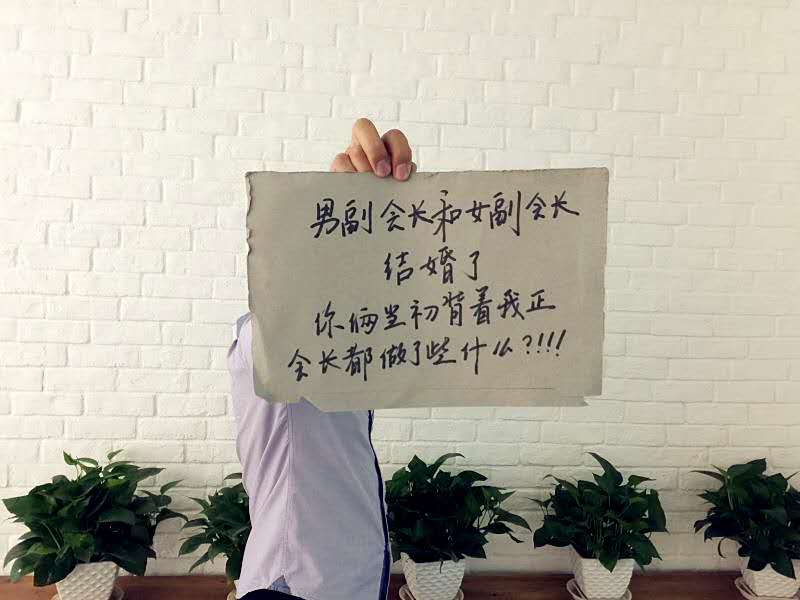 男副会长和女副会长
结婚了
你俩当初背着我正
会长都做了些什么?!!!